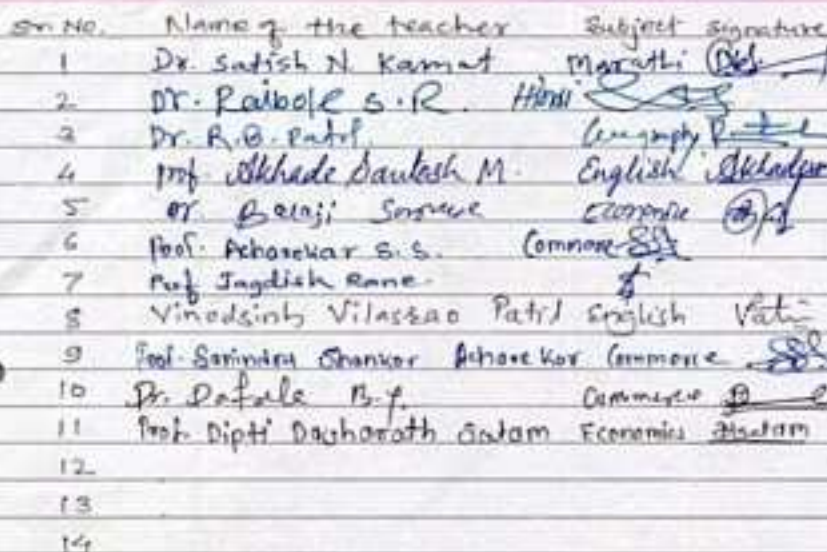 Sr. No. Name of the teacher Subject Signature
1 Dr. Satish N. Kamat Marathi
2 Dr. Raibole S.R. Hindi
3 Dr. R.B. Patil Geography
4 Prof. Akhade Santosh M. English
5 Dr. Balaji Economic
6 Prof. Acharekar S.S. Commerce
7 Prof Jagdish Rane
8 Vinodsinh Vilasrao Patil English Patil
9 Prof. Shankar Acharekar Commerce
10 Dr. Dafale B.Y. Commerce
11 Prof. Dipti Dasharath Satam Economics
12
13
14